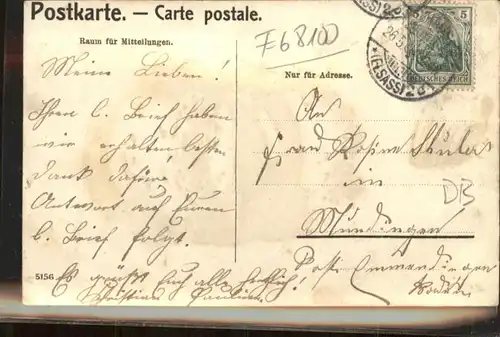 Postkarte. — Carte postale.
Raum für Mitteilungen.
Nur für Adresse.
E6810
5
DEUTSCHES REICH
*(ELSASS)2d*
Meine Lieben!
Ihren l. Brief haben
wir erhalten besten
Dank dafür.
Antwort auf Euren
l. Brief folgt.
Es grüßt Euch alle herzlich!
An
Frau Rosine
in
Mundingen
Post Emmendingen
Baden
DB
5156